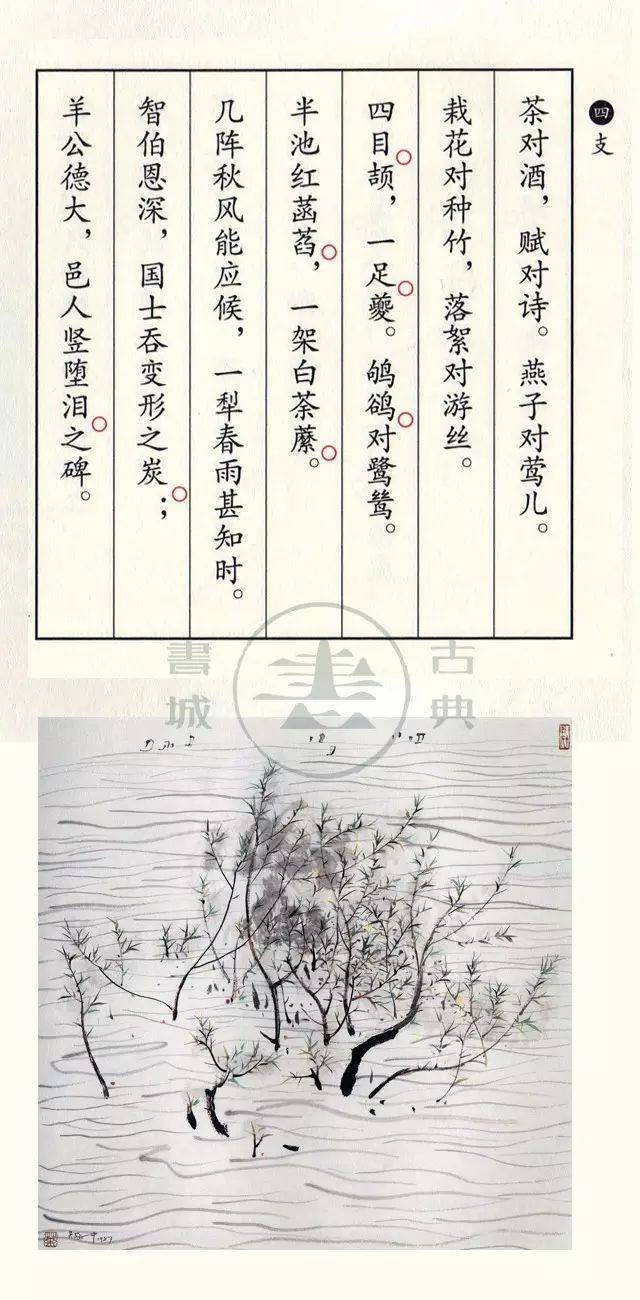 四 支
茶对酒，赋对诗。燕子对莺儿。
栽花对种竹，落絮对游丝。
四目颉，一足夔。鸲鹆对鹭鸶。
半池红菡萏，一架白荼蘼。
几阵秋风能应候，一犁春雨甚知时。
智伯恩深，国士吞变形之炭；
羊公德大，邑人竖堕泪之碑。
古典
書
書城